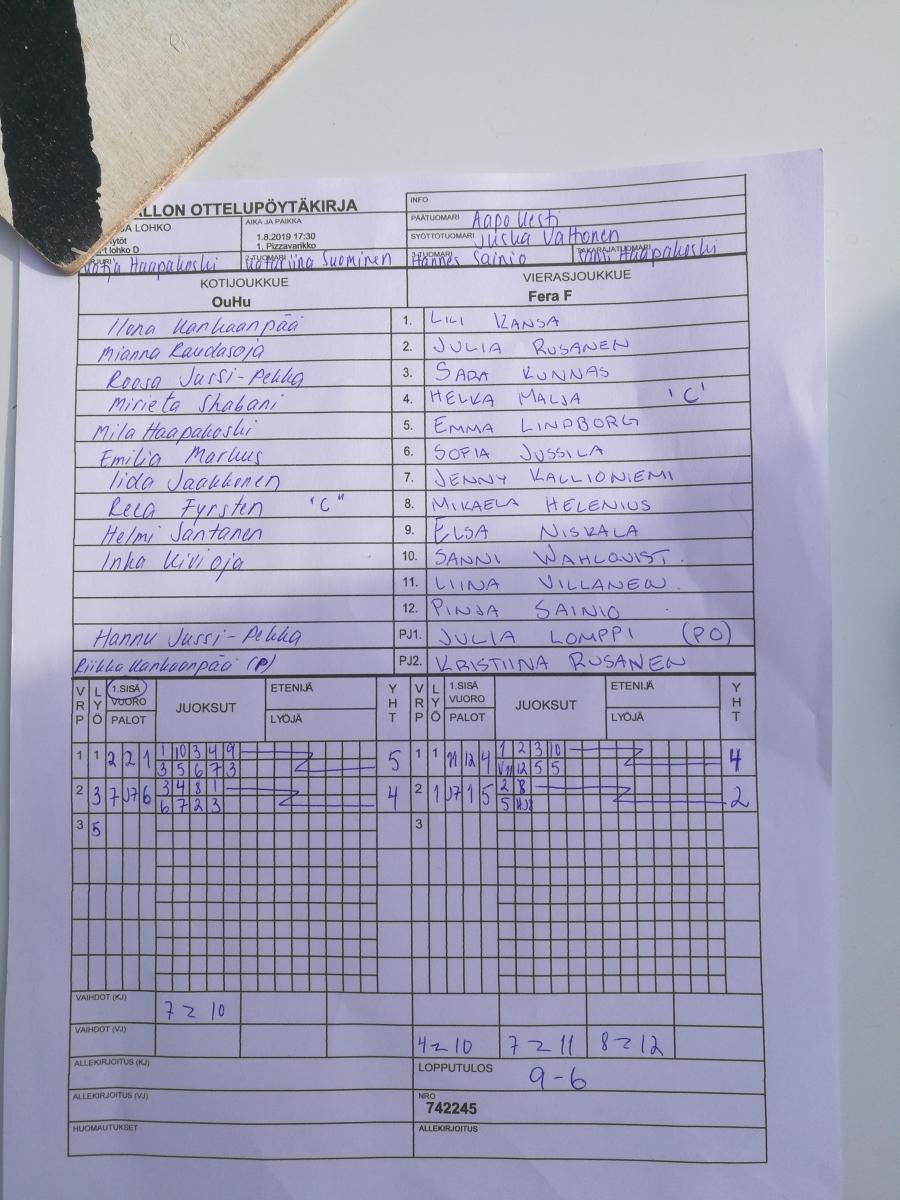 ALLON OTTELUPÖYTÄKIRJA
INFO
LOHKO
AIKA JA PAIKKA
PÄÄTUOMARI Aapo Vesti
t lohko D
1.8.2019 17:30
1. Pizzavarikko
SYÖTTÖTUOMARI Juska Valtonen
Haapakoski
2-TUOMARI Katariina Suominen
3-TUOMARI Hannes Sainio
TAKARAJATUOMARI Haapakoski
KOTIJOUKKUE
VIERASJOUKKUE
OuHu
Fera F
Ilona Kankaanpää 1. LILI KANSA
Mianna Raudasoja 2. JULIA RUSANEN
Roosa Jussi-Pekka 3. SARA KUNNAS
Mirjeta Shabani 4. HELKA MALJA 'C'
Mila Haapakoski 5. EMMA LINDBORG
Emilia Markus 6. SOFIA JUSSILA
Iida Jaakkonen 7. JENNY KALLIONIEMI
Reea Fyrsten "C" 8. MIKAELA HELENIUS
Helmi Santanen 9. ELSA NISKALA
Inka Kivioja 10. SANNI WAHLQVIST
11. LIINA VILLANEN
12. PINJA SAINIO
Hannu Jussi-Pekka PJ1. JULIA LOMPPI (PO)
Riikka Kankaanpää (P) PJ2. KRISTIINA RUSANEN
VRP LYÖ 1.SISÄ VUORO PALOT JUOKSUT ETENIJÄ LYÖJÄ YHT VRP LYÖ 1.SISÄ VUORO PALOT JUOKSUT ETENIJÄ LYÖJÄ YHT
1 1 2 2 1 1 10 3 4 9 5 1 1 11 12 4 1 2 3 10 4
3 5 6 7 3 12 5 5
2 3 7 J7 6 3 4 8 1 4 2 1 J7 1 5 2 8 2
6 7 2 3 5
3 5 3
VAIHDOT (KJ) 7 = 10
VAIHDOT (VJ) 4 = 10 7 = 11 8 = 12
ALLEKIRJOITUS (KJ)
LOPPUTULOS 9-6
ALLEKIRJOITUS (VJ)
NRO
742245
HUOMAUTUKSET
ALLEKIRJOITUS